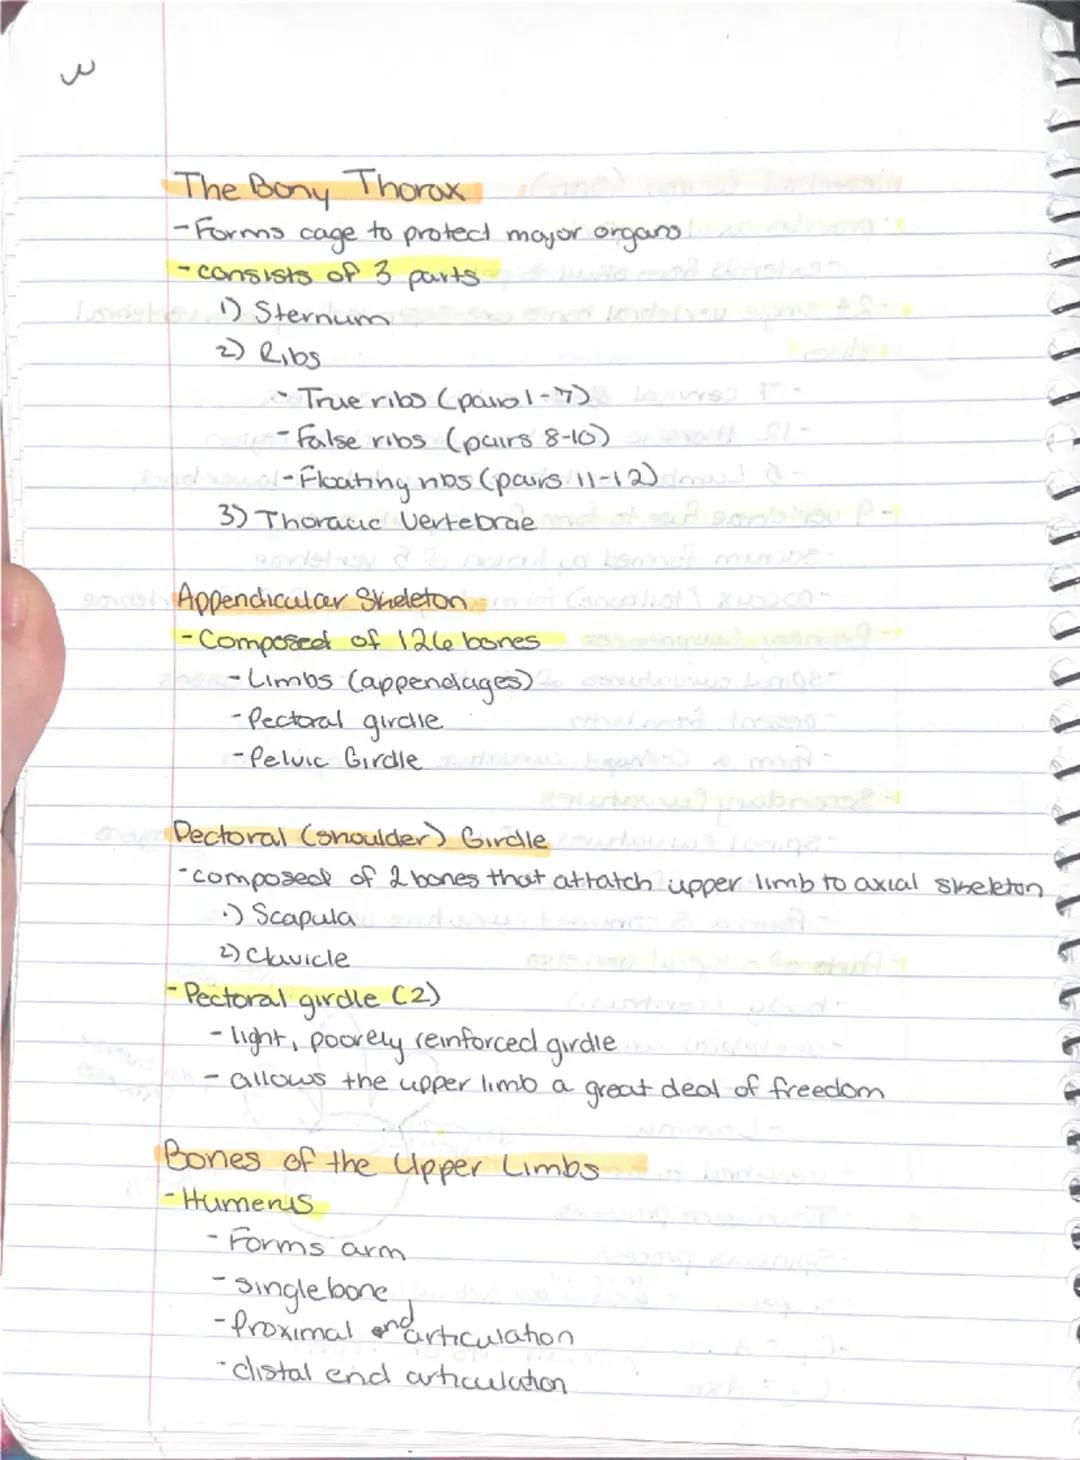 3
The Bony Thorax
- Forms cage to protect major organs
- consists of 3 parts
1) Sternum
2) Ribs
- True ribs (pairs 1-7)
- False ribs (pairs 8-10)
- Floating ribs (pairs 11-12)
3) Thoracic Vertebrae
Appendicular Skeleton
- Composed of 126 bones
- Limbs (appendages)
- Pectoral girdle
- Pelvic Girdle
Pectoral (shoulder) Girdle
- composed of 2 bones that attatch upper limb to axial skeleton
1) Scapula
2) Clavicle
- Pectoral girdle (2)
- light, poorely reinforced girdle
- allows the upper limb a great deal of freedom
Bones of the Upper Limbs
- Humerus
- Forms arm
- single bone
- Proximal end articulation
- distal end articulation